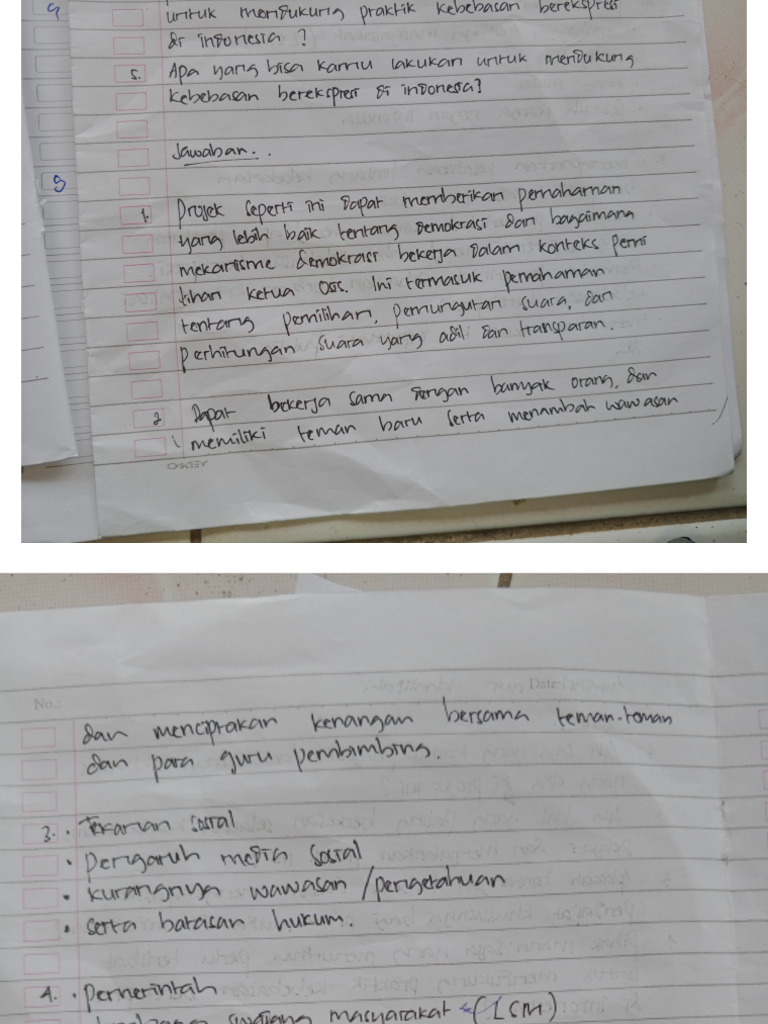 9
untuk mendukung praktik kebebasan berekspresi
di indonesia ?
5. Apa yang bisa kamu lakukan untuk mendukung
kebebasan berekspresi di indonesia?
Jawaban...
9
1. Projek seperti ini dapat memberikan pemahaman
yang lebih baik tentang demokrasi dan bagaimana
mekanisme demokrasi bekerja dalam konteks pemi
lihan ketua osis. Ini termasuk pemahaman
tentang pemilihan, pemungutan suara, dan
perhitungan suara yang adil dan transparan.
2. Dapat bekerja sama dengan banyak orang, dan
memiliki teman baru serta menambah wawasan
No.: Date:
dan menciptakan kenangan bersama teman-teman
dan para guru pembimbing.
3. • Tekanan sosial
• pengaruh media sosial
• kurangnya wawasan / pengetahuan
• serta batasan hukum.
4. • pemerintah
swadaya masyarakat (LCM)